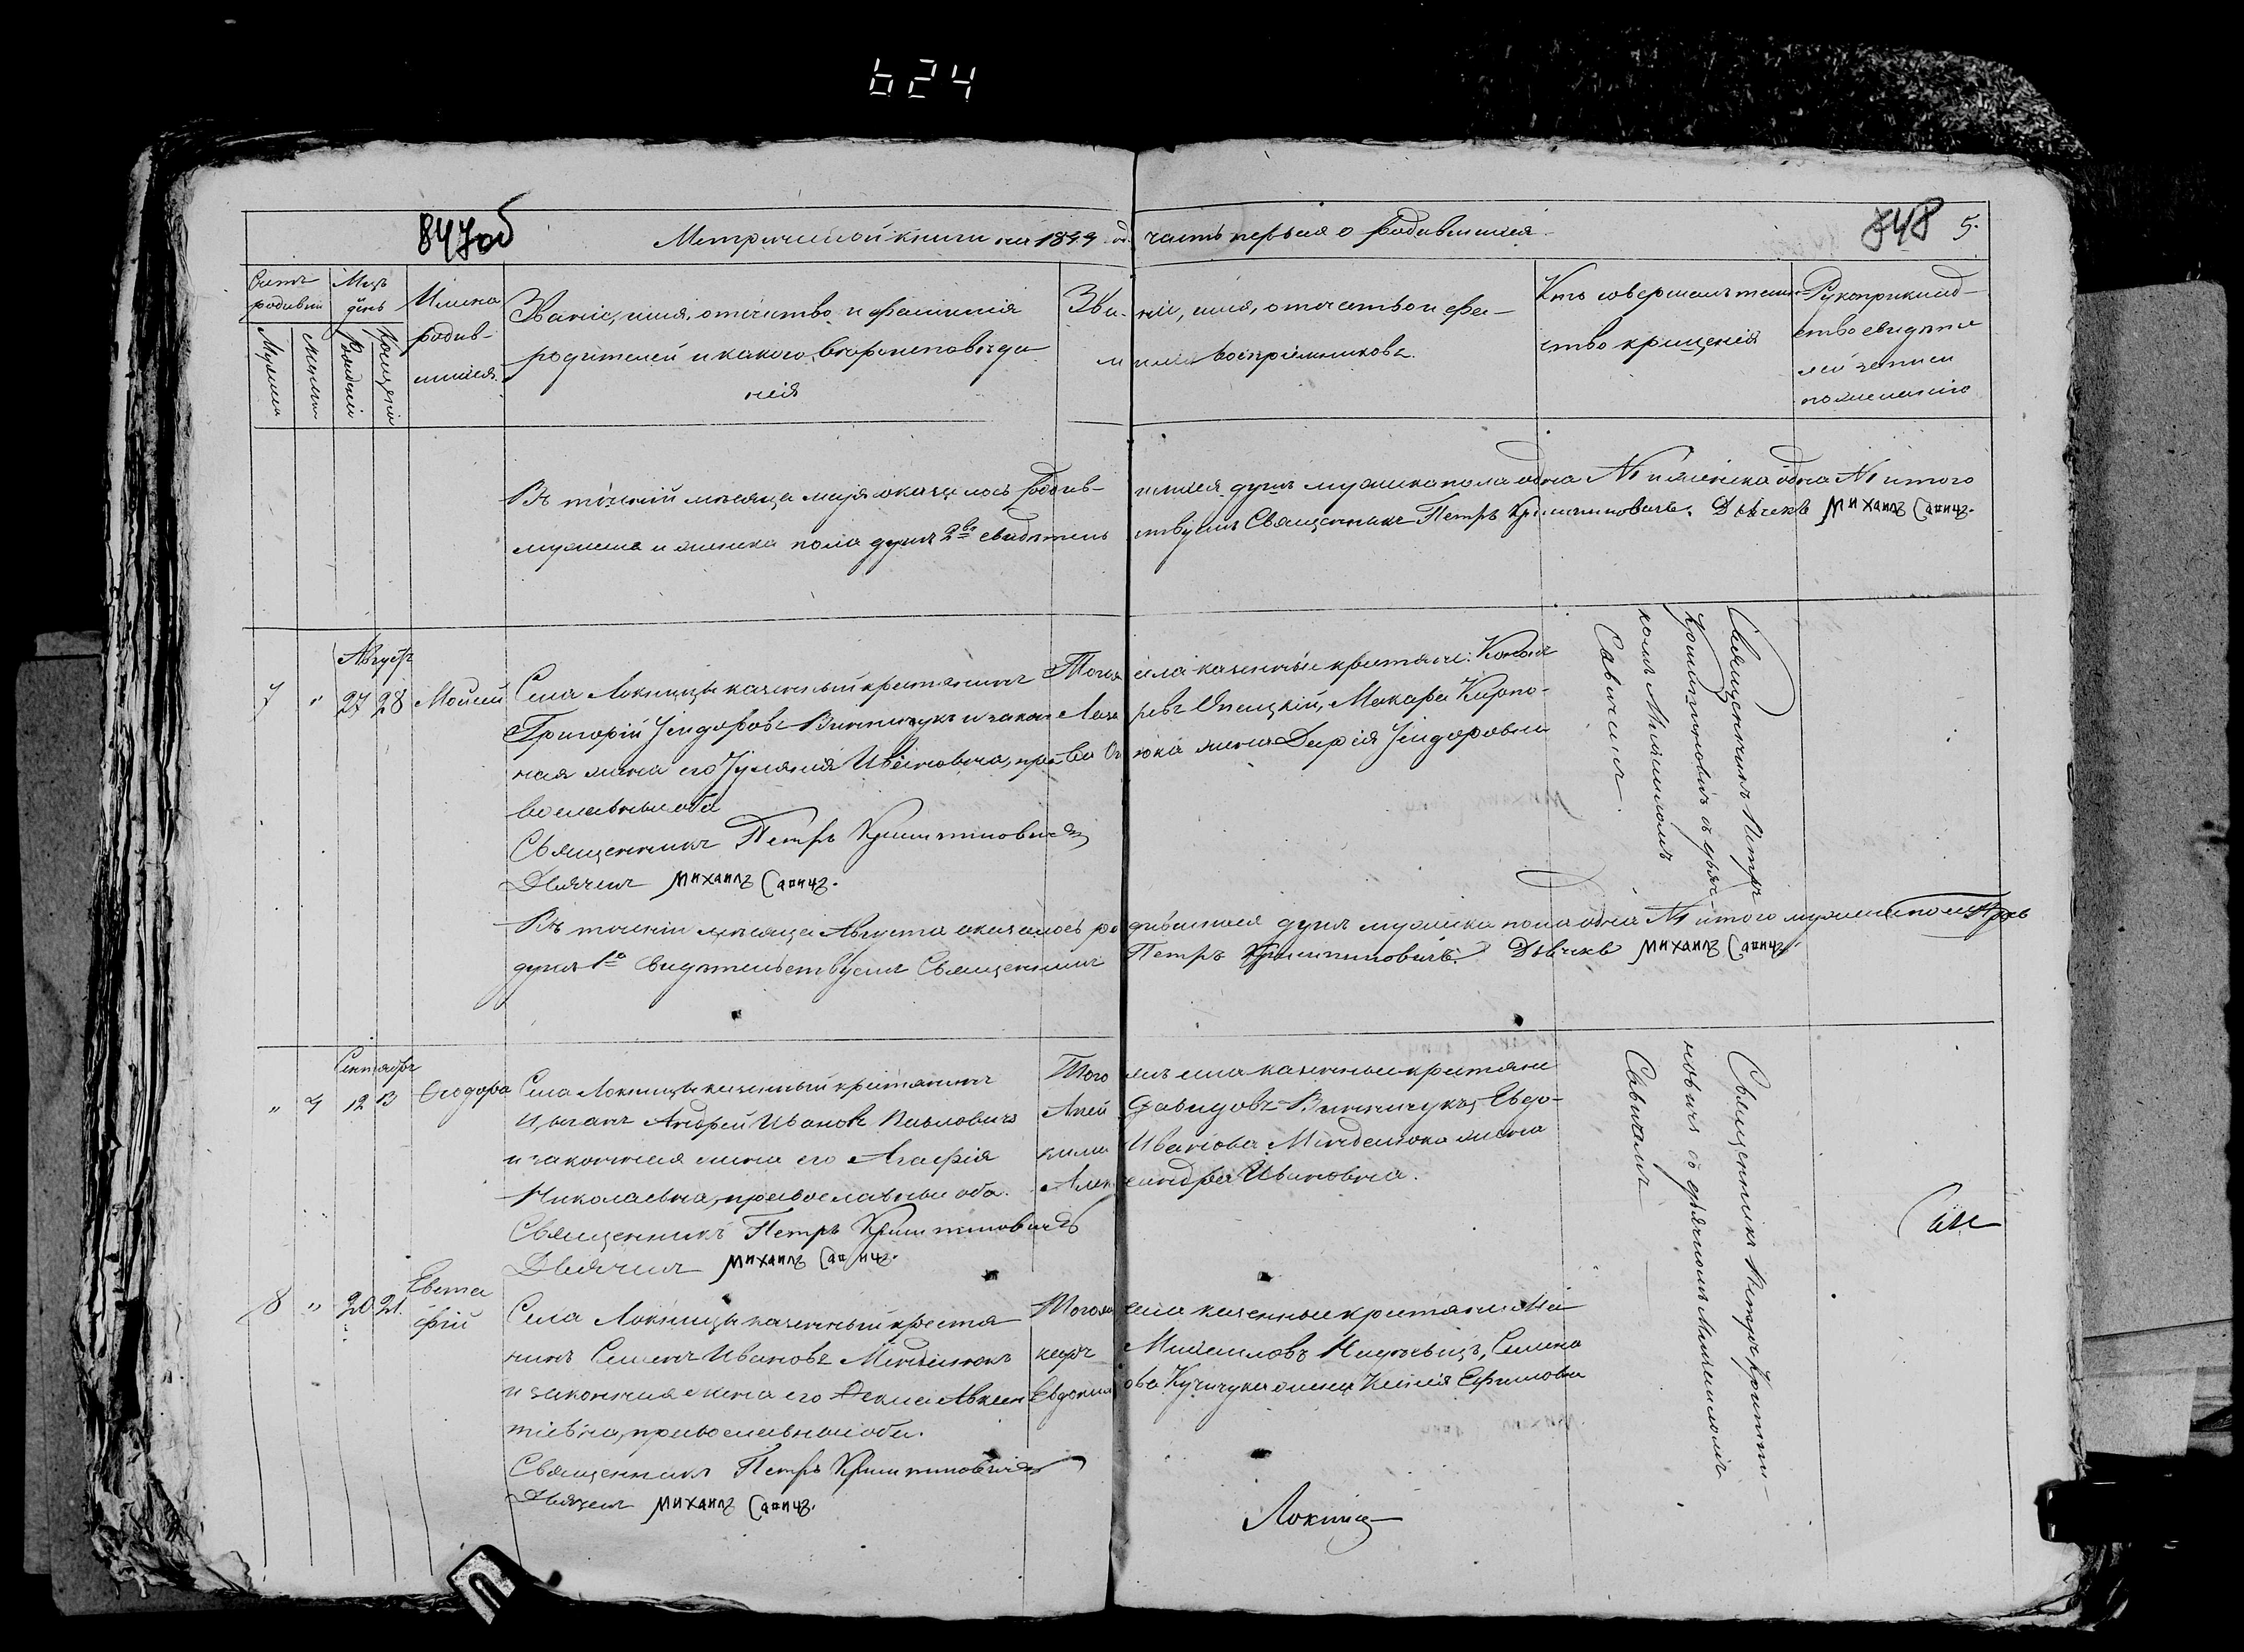 624
847об
Метрической книги на 1849 год часть первая о родившихся
848 5.
Счетъ родивши
Мужеска
Женска
Мсцъ день
Рожденія
Крещенія
Имена
родив-
шихся.
Званіе, имя, отчество и фамилія
родителей и какого вероисповеда
нія
Зва- ніе, имя, отчество и фа-
милія воспріемниковъ.
Кто совершалъ таин-
ство крещенія
Рукоприклад-
ство свидете
лей записи
по желанію
Въ теченіи месяца маія оказалось родив- шихся душъ мужеска пола одна №1 и женска одна №1 итого
мужеска и женска пола душъ 2ве свидетель ствуемъ Священникъ Петръ Криштиновичъ. Дьячекъ Михаилъ
7 " Августъ 27 28 Мойсей
Села Локницы казенный крестянинъ
Григорій Ісидоровъ Винничукъ и закон
ная жена его Іуліянія Ивановна, пра-
вославные оба
Священникъ Петръ Криштиновичъ
Дьячекъ Михаилъ
Тогожъ села казенные крестяне:
Лаза ревъ Макара Карпо-
юка жена Дарія Ісидоровна
Священникъ Петръ
Криштиновичъ съ дьяч
комъ Михаиломъ
Савичемъ.
Въ теченіи месяца Августа оказалось ро дившихся душъ мужеска пола одна №1 итого мужеска пола
душъ 1а Свидетельствуемъ Священникъ Петръ Криштиновичъ. Дьячекъ Михаилъ
" 4 Сентябрь 12 13 Феодора
Села Локницы казенный крестянинъ
Андрей Ивановъ Павловичъ
и законная жена его Агафія
Николаевна, православные оба.
Священникъ Петръ Криштиновичъ
Дьячекъ Михаилъ
Того жъ села казенные крестяне
Давидовъ Винничукъ, Евдо-
кима Иванова жена
Алек сандра Ивановна.
Священникъ Петръ Кришти-
новичъ съ дьячкомъ Михаиломъ
Савичемъ
8 " 20 21. Евста
фій
Села Локницы казенный крестя
нинъ Семенъ Ивановъ
и законная жена его Фекла Авксен
тіевна, православные оба.
Священникъ Петръ Криштиновичъ
Дьячекъ Михаилъ
Тогожъ села казенные крестяне Ма
каръ Михаиловъ Семена
Евдоким ова жена Ксенія Ефимовна
Локниц